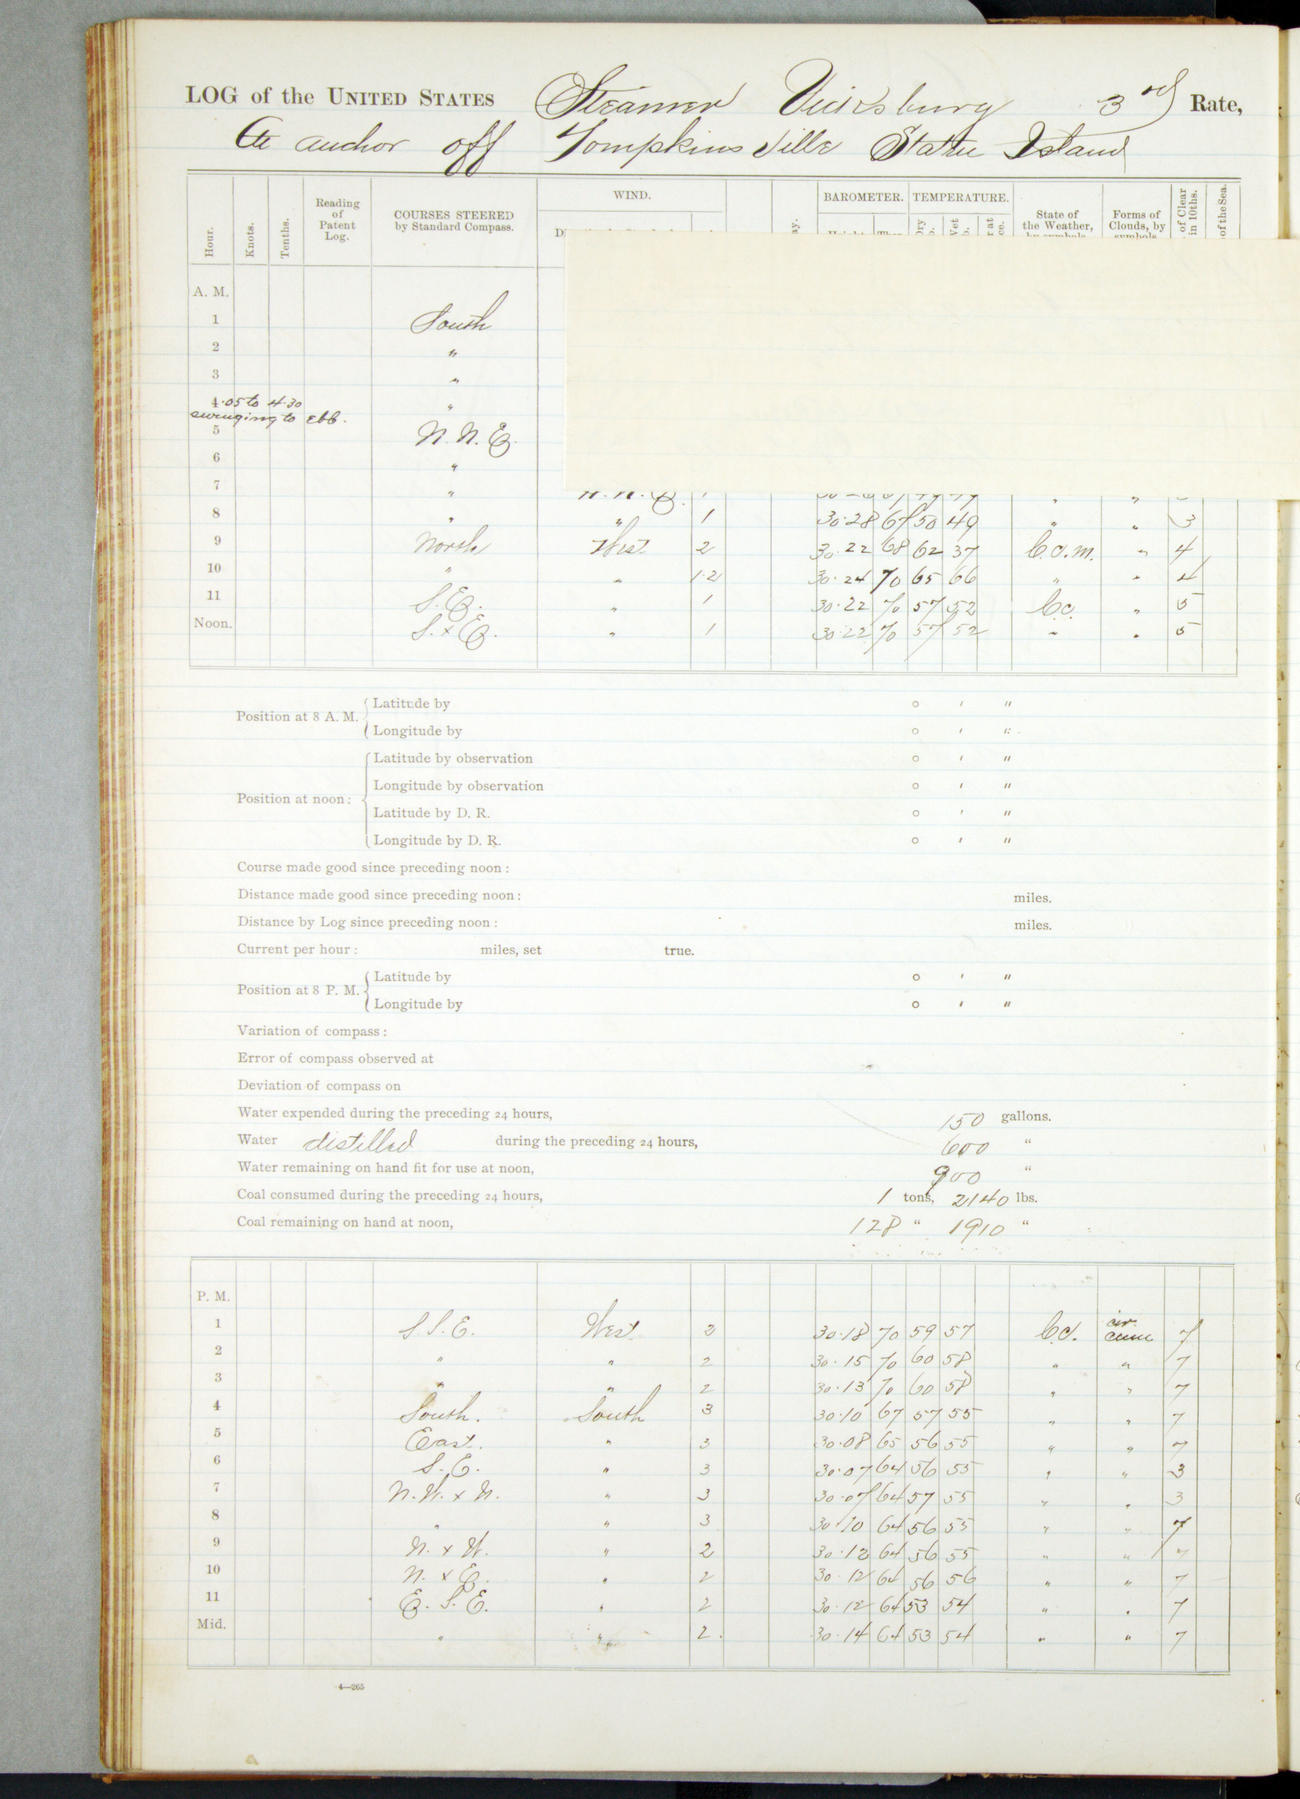 LOG of the UNITED STATES Steamer Vicksburg 3rd Rate,
At anchor off Tompkinsville Staten Island
Hour. Knots. Tenths. Reading of Patent Log. COURSES STEERED by Standard Compass. WIND. BAROMETER. TEMPERATURE. State of the Weather, Forms of Clouds, by of Clear in 10ths. of the Sea.
A. M.
1 South
2 "
3 "
4 "
4.05 to 4.30
swinging to ebb.
5 N. N. E.
6 "
7 " N. N. E. 1
8 " " 1 30.28 67 50 49 " " 3
9 North West 2 30.22 68 62 37 b.c.m. " 4
10 " " 1.2 30.24 70 65 66 " " 4
11 S. E. " 1 30.22 70 57 52 b.c. " 5
Noon. S. x E. " 1 30.22 70 57 52 " " 5
Position at 8 A. M. Latitude by ° ′ ″
Longitude by ° ′ ″
Position at noon: Latitude by observation ° ′ ″
Longitude by observation ° ′ ″
Latitude by D. R. ° ′ ″
Longitude by D. R. ° ′ ″
Course made good since preceding noon:
Distance made good since preceding noon: miles.
Distance by Log since preceding noon: miles.
Current per hour: miles, set true.
Position at 8 P. M. Latitude by ° ′ ″
Longitude by ° ′ ″
Variation of compass:
Error of compass observed at
Deviation of compass on
Water expended during the preceding 24 hours, 150 gallons.
Water distilled during the preceding 24 hours, 600 "
Water remaining on hand fit for use at noon, 900 "
Coal consumed during the preceding 24 hours, 1 tons, 2140 lbs.
Coal remaining on hand at noon, 128 " 1910 "
P. M.
1 S S. E. West 2 30.18 70 59 57 b.c. cir. cum 7
2 " " 2 30.15 70 60 58 " " 7
3 " " 2 30.13 70 60 58 " " 7
4 South. South 3 30.10 67 57 55 " " 7
5 East. " 3 30.08 65 56 55 " " 7
6 S. E. " 3 30.07 64 56 55 " " 3
7 N. W. x N. " 3 30.07 64 57 55 " " 3
8 " " 3 30.10 64 56 55 " " 7
9 N. x W. " 2 30.12 64 56 55 " " 7
10 N. x E. " 2 30.12 64 56 56 " " 7
11 E. S. E. " 2 30.12 64 53 54 " " 7
Mid. " " 2. 30.14 64 53 54 " " 7
4—265